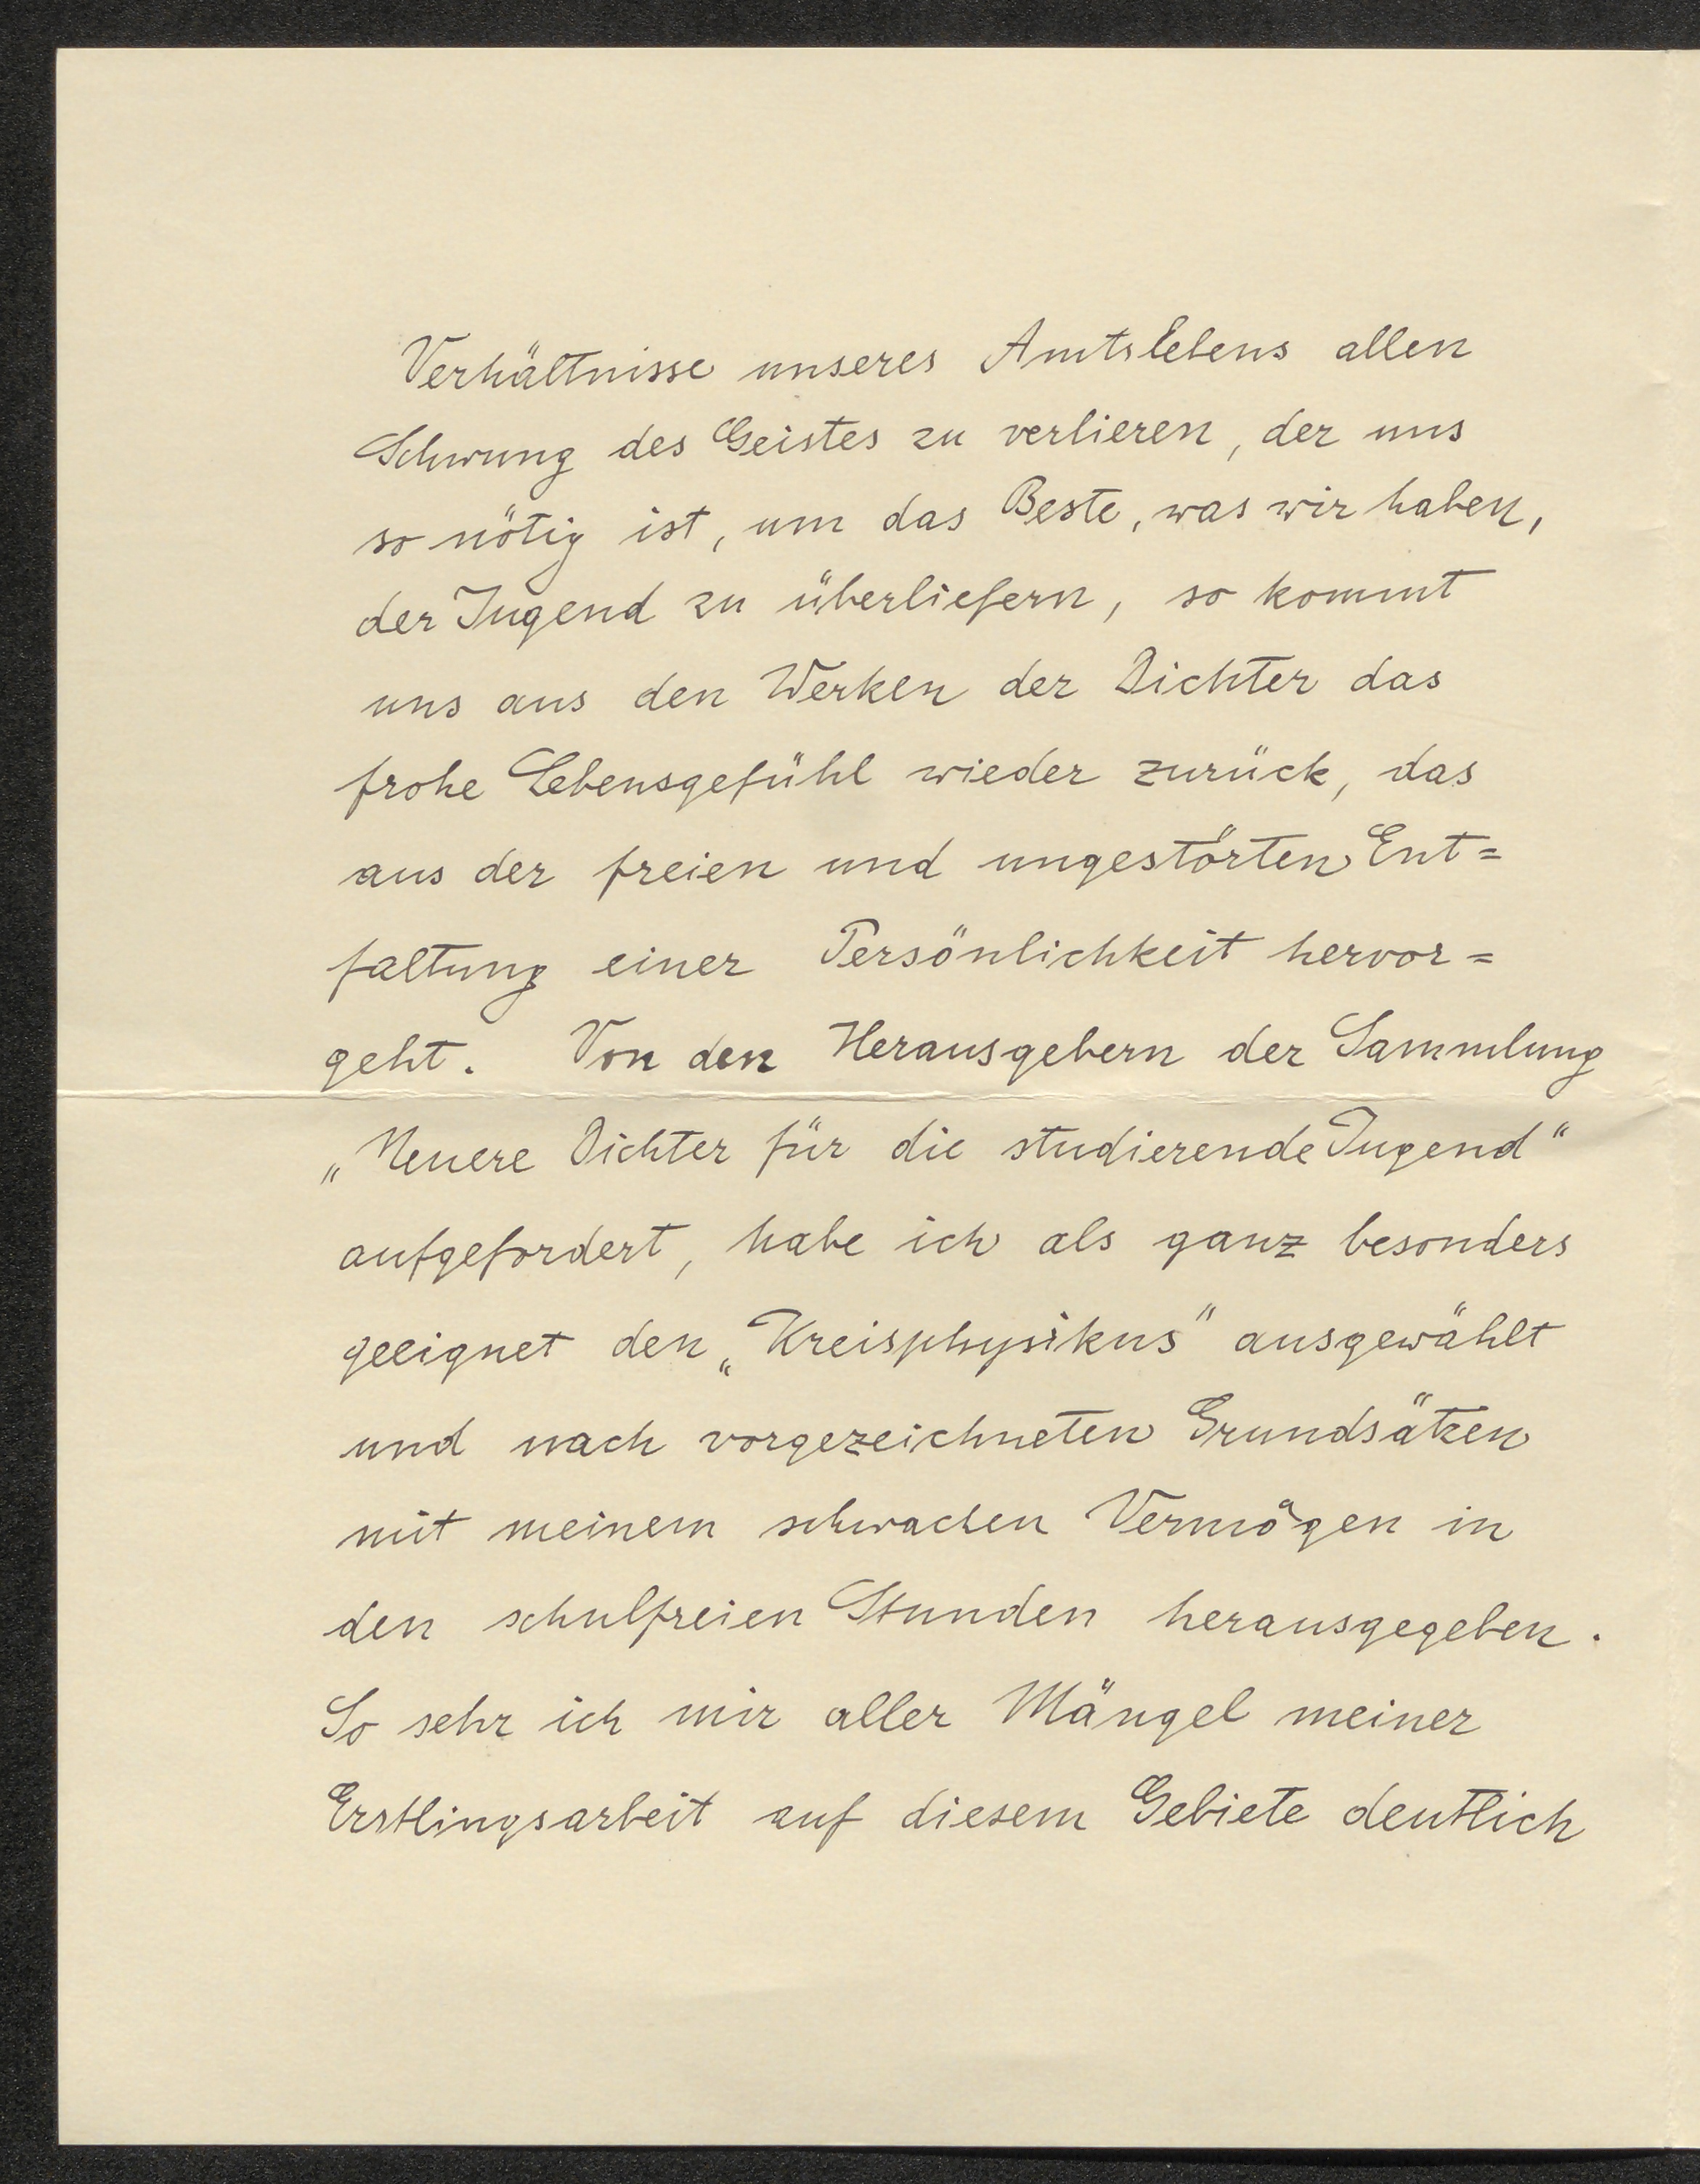 Verhältnisse unseres Amtslebens allen
Schwung des Geistes zu verlieren, der uns
so nötig ist, um das Beste, was wir haben,
der Jugend zu überliefern, so kommt
uns aus den Werken der Dichter das
frohe Lebensgefühl wieder zurück, das
aus der freien und ungestörten Ent=
faltung einer Persönlichkeit hervor=
geht. Von den Herausgebern der Sammlung
„Neuere Dichter für die studierende Jugend“
aufgefordert, habe ich als ganz besonders
geeignet den „Kreisphysikus“ ausgewählt
und nach vorgezeichneten Grundsätzen
mit meinem schwachen Vermögen in
den schulfreien Stunden herausgegeben.
So sehr ich mir aller Mängel meiner
Erstlingsarbeit auf diesem Gebiete deutlich